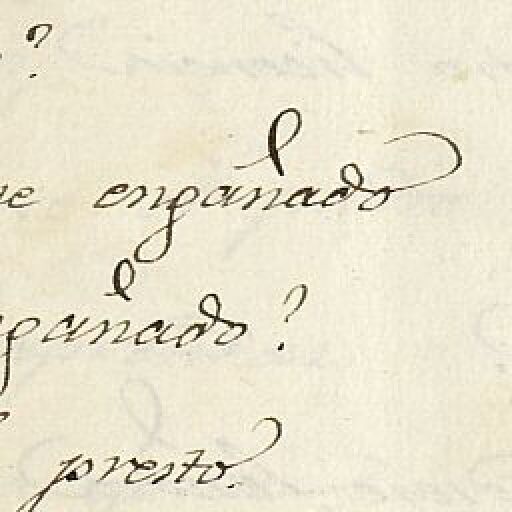 ?
engañado
gañado?
presto.